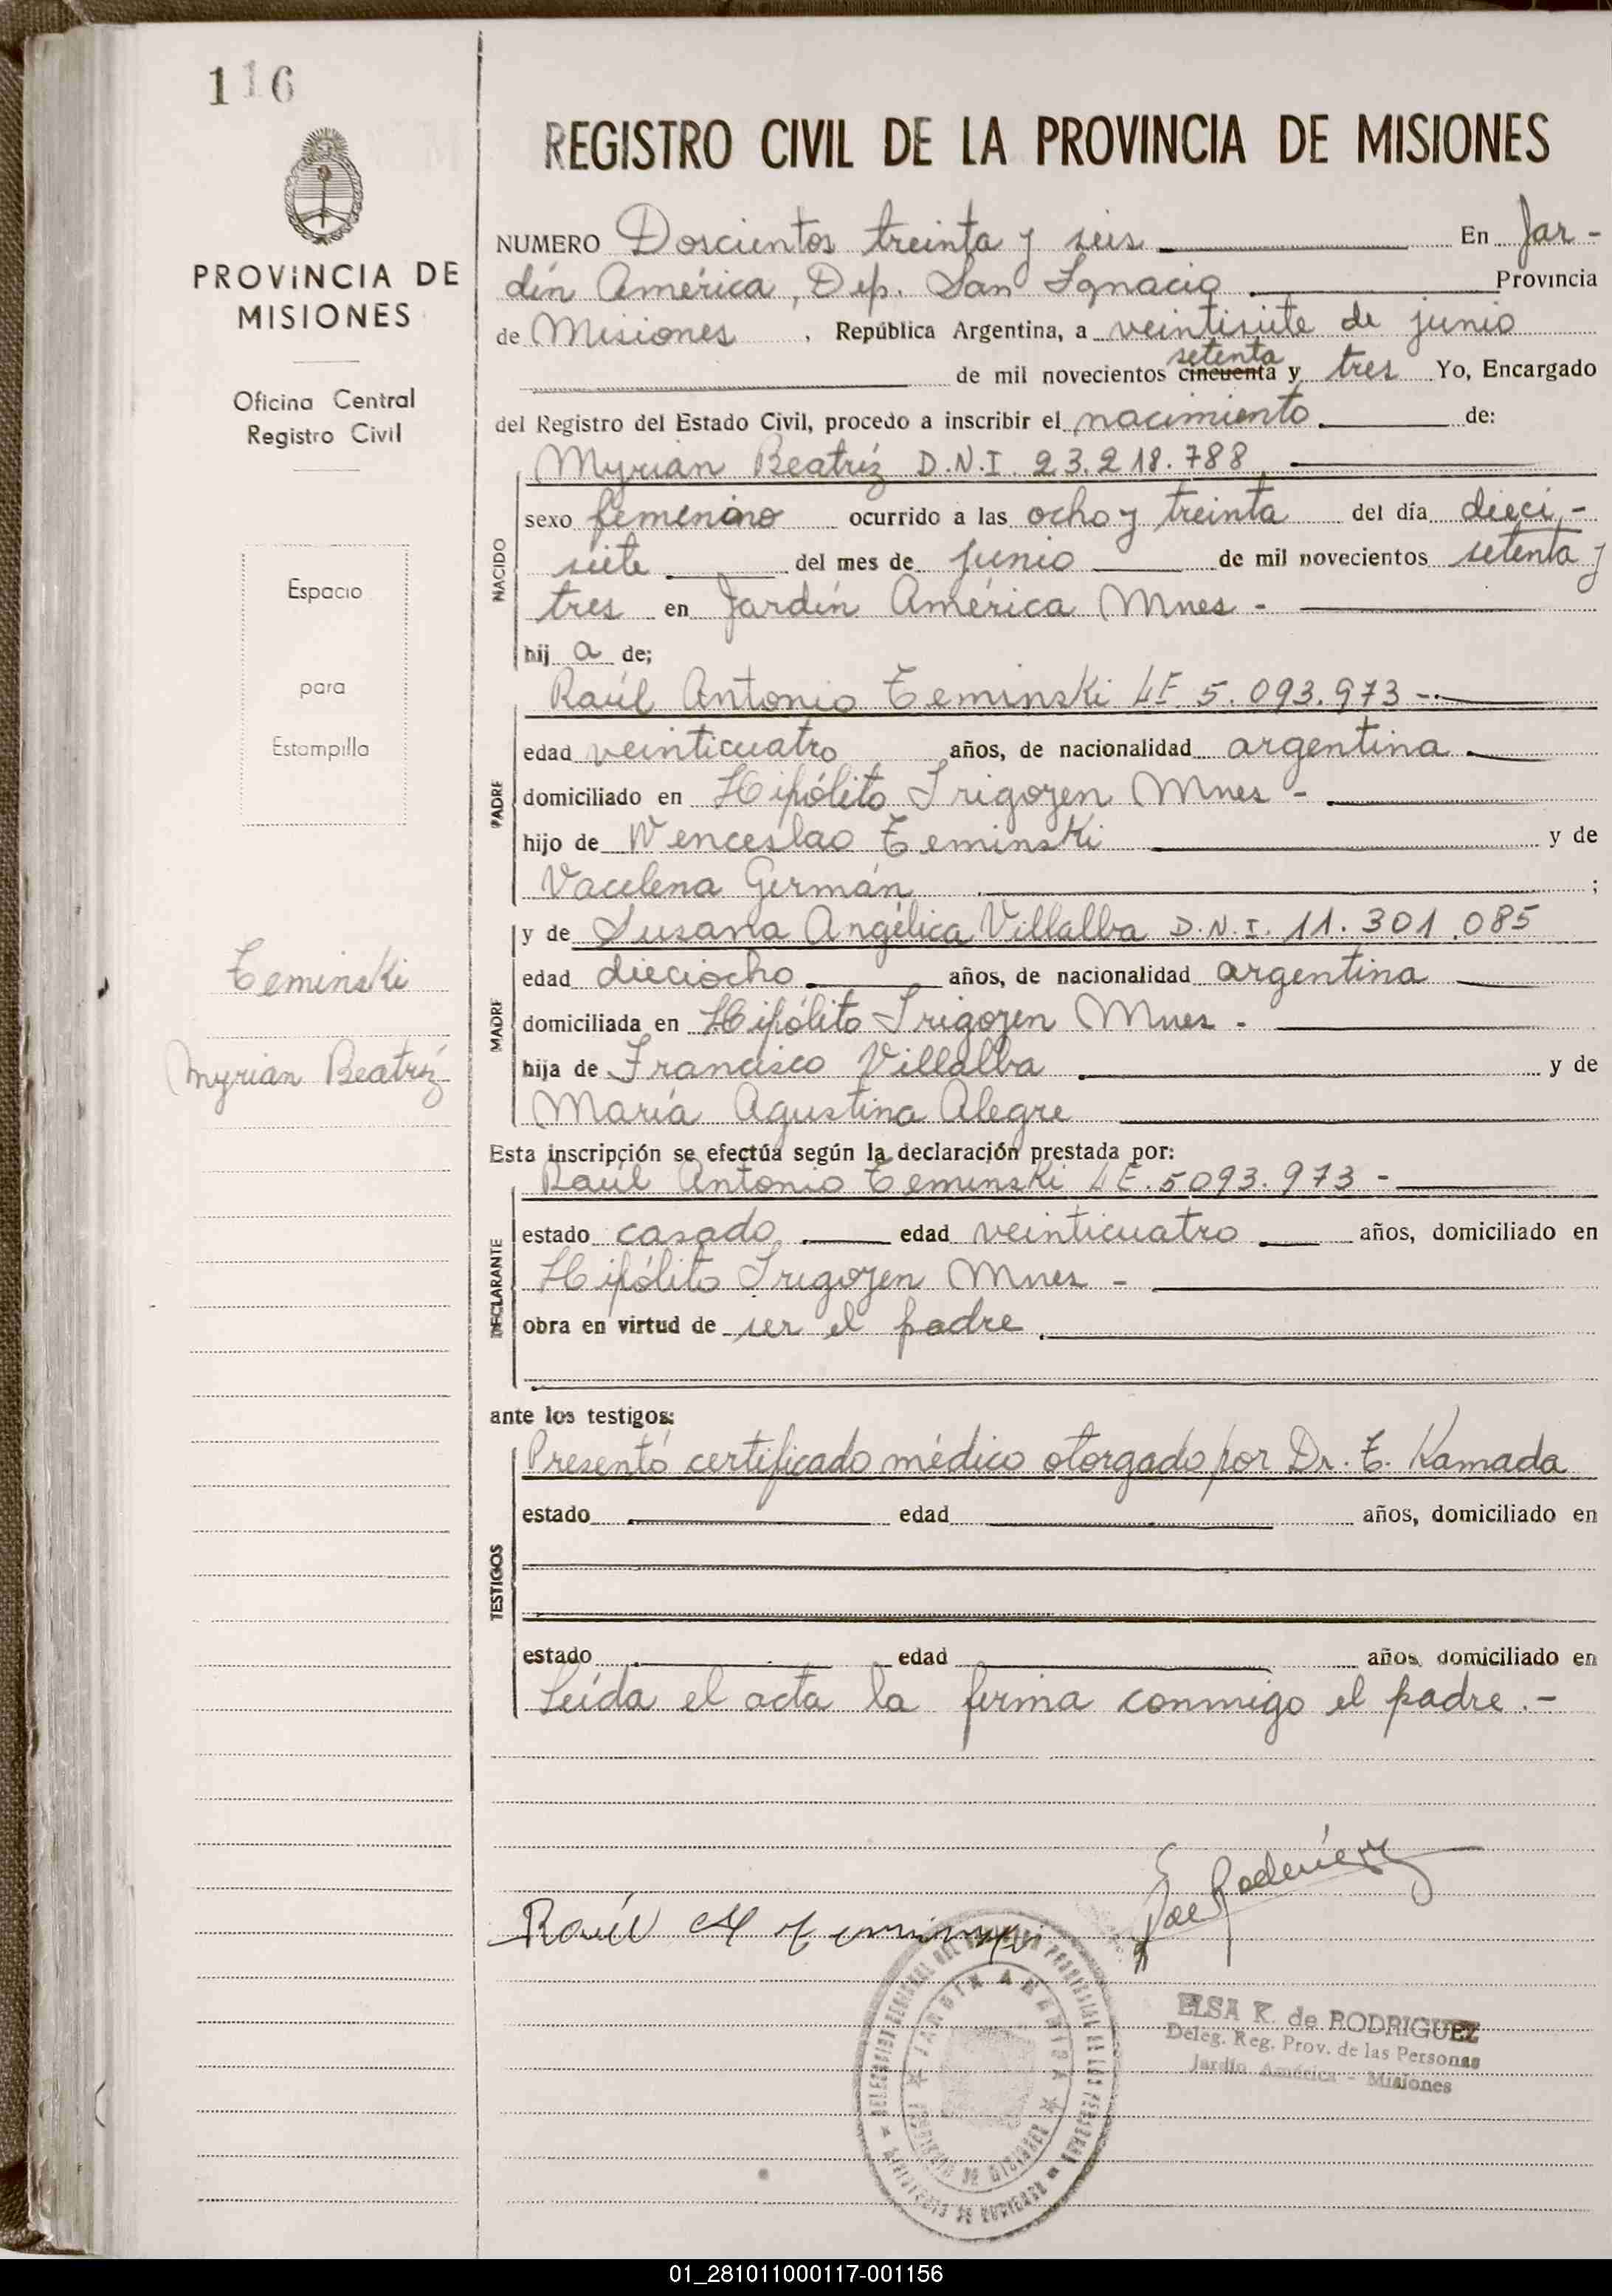 116
PROVINCIA DE
MISIONES
Oficina Central
Registro Civil
Espacio
para
Estampilla
Teminski
Myrian Beatríz
REGISTRO CIVIL DE LA PROVINCIA DE MISIONES
NUMERO Doscientos treinta y seis En Jar-
dín América, Dep. San Ignacio Provincia
de Misiones, República Argentina, a veintisiete de junio
setenta
de mil novecientos cincuenta y tres Yo, Encargado
del Registro del Estado Civil, procedo a inscribir el nacimiento de:
NACIDO
Myrian Beatríz D.N.I. 23.218.788
sexo femenino ocurrido a las ocho y treinta del día dieci-
siete del mes de junio de mil novecientos setenta y
tres en Jardín América Mnes -
hij a de;
PADRE
Raúl Antonio Teminski LE 5.093.973 -
edad veinticuatro años, de nacionalidad argentina
domiciliado en Hipólito Irigoyen Mnes -
hijo de Wenceslao Teminski y de
Vacelena Germán ;
MADRE
y de Susana Angélica Villalba D.N.I. 11.301.085
edad dieciocho años, de nacionalidad argentina
domiciliada en Hipólito Irigoyen Mnes -
hija de Francisco Villalba y de
María Agustina Alegre
Esta inscripción se efectúa según la declaración prestada por:
DECLARANTE
Raúl Antonio Teminski LE. 5093.973 -
estado casado edad veinticuatro años, domiciliado en
Hipólito Irigoyen Mnes -
obra en virtud de ser el padre
ante los testigos:
TESTIGOS
Presentó certificado médico otorgado por Dr. T. Kamada
estado edad años, domiciliado en
estado edad años, domiciliado en
Leída el acta la firma conmigo el padre.-
Raúl A Teminski
Rodríguez
JARDIN AMERICA
ELSA K. de RODRIGUEZ
Deleg. Reg. Prov. de las Personas
Jardín América - Misiones
01_281011000117-001156